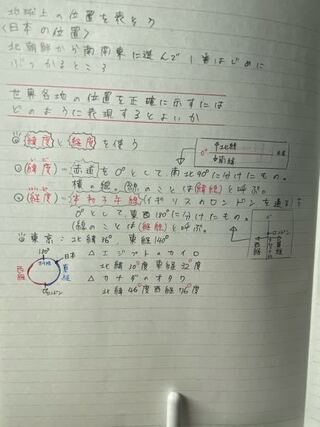 地球上の位置を表そう
〈日本の位置〉
北朝鮮から南南東に進んで1番はじめに
ぶつかるところ
世界各地の位置を正確に示すには
どのように表現するとよいか
緯度と経度を使う
北緯
0°
南緯
緯度-赤道を0°として、南北90°に分けたもの。
横の線。のことは(緯線)と呼ぶ。
経度-本初子午線(イギリスのロンドンを通る
0°として、東西180°に分けたもの。
(経のことは(経線)と呼ぶ。
東京:北緯36°、東経140°
180°
日本
西経
東経
ロンドン
△エジプトのカイロ
北緯30度東経32度
△カナダのオタワ
北緯46度西経76度
ロンドン
西経
東経